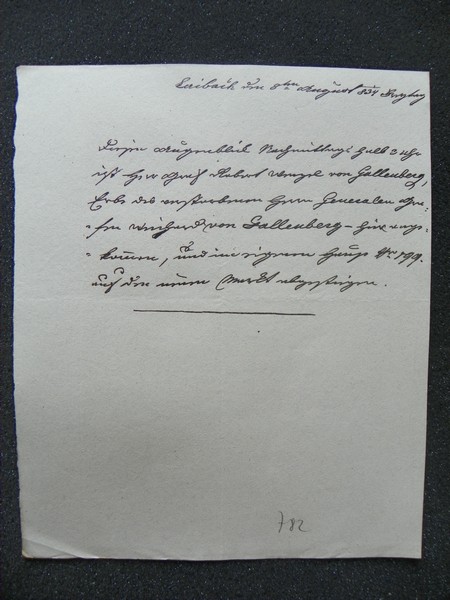 Laibach den 8ten August 834 Freytag
Diesen Augenblick Nachmittags halb 3 Uhr
ist Herr Graf Robert Wenzel von Gallenberg,
Erbe des verstorbenen Herrn Generalen Gra-
-fen Weichard von Gallenberg - hier ange-
-kommen, und im eigenen Hause Nro 199.
auf den neuen Markt abgestiegen.
782